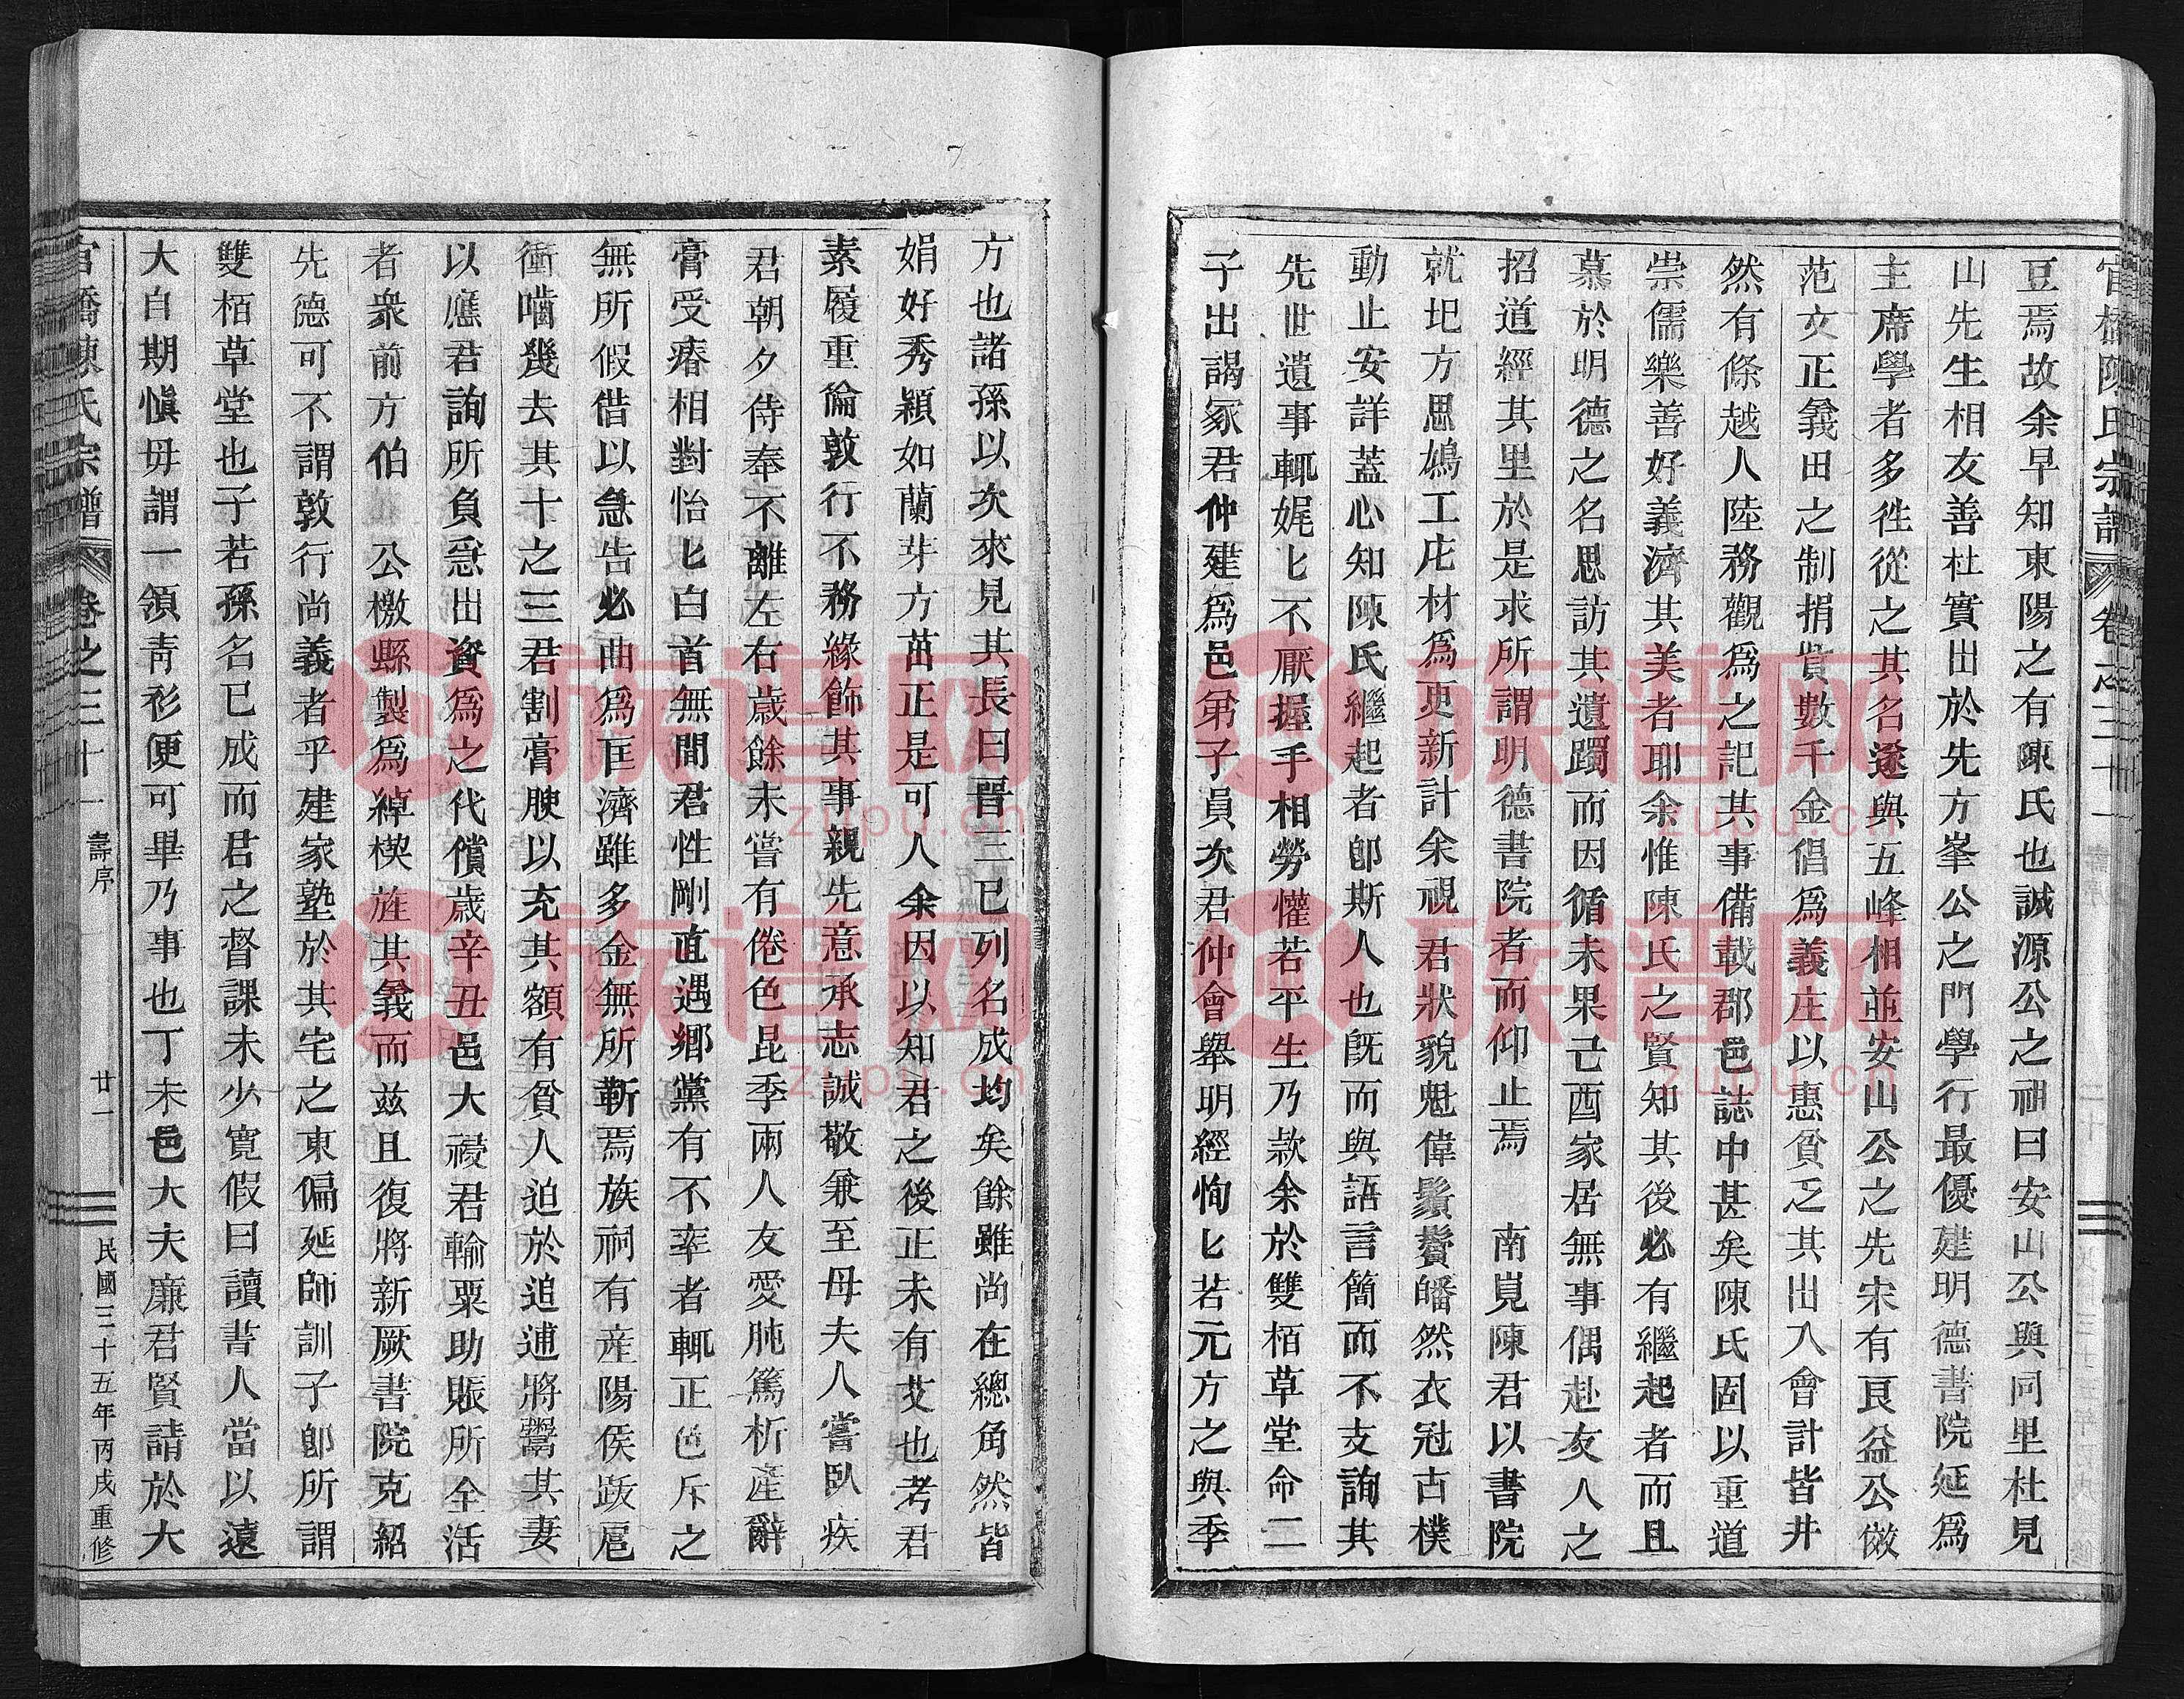 豆焉故余早知東陽之有陳氏也誠源公之祖曰安山公與同里杜見
山先生相友善杜實出於先方峯公之門學行最優建明德書院延為
主席學者多徃從之其名遂與五峰相並安山公之先宋有艮益公倣
范文正義田之制捐貲數千金倡為義庄以惠貧乏其出入會計皆井
然有條越人陸務觀為之記其事備載郡邑誌中甚矣陳氏固以重道
崇儒樂善好義濟其美者耶余惟陳氏之賢知其後必有繼起者而且
慕於明德之名思訪其遺躅而因循未果己酉家居無事偶赴友人之
招道經其里於是求所謂明德書院者而仰止焉　南見陳君以書院
就圮方思鳩工庀材為更新計余視君狀貌魁偉鬚鬢皤然衣冠古樸
動止安詳蓋心知陳氏繼起者卽斯人也旣而與語言簡而不支詢其
先世遺事輒娓匕不厭握手相勞懽若平生乃款余於雙栢草堂命二
子出謁冢君仲建為邑弟子員次君仲會舉明經恂匕若元方之與季
方也諸孫以次來見其長曰晋三已列名成均矣餘雖尚在總角然皆
娟好秀穎如蘭芽方茁正是可人余因以知君之後正未有艾也考君
素履重倫敦行不務緣飾其事親先意承志誠敬兼至母夫人嘗臥疾
君朝夕侍奉不離左右歲餘未嘗有倦色昆季兩人友愛肫篤析產辭
膏受瘠相對怡匕白首無間君性剛直遇鄉黨有不率者輒正色斥之
無所假借以急告必曲為匡濟雖多金無所靳焉族祠有産陽侯跋扈
衝嚙幾去其十之三君割膏腴以充其額有貧人迫於追逋將鬻其妻
以應君詢所負悉出資為之代償歲辛丑邑大祲君輸粟助賑所全活
者衆前方伯　公檄縣製為綽楔旌其義而茲且復將新厥書院克紹
先德可不謂敦行尚義者乎建家塾於其宅之東偏延師訓子卽所謂
雙栢草堂也子若孫名已成而君之督課未少寬假曰讀書人當以遠
大自期愼毋謂一領靑衫便可畢乃事也丁未邑大夫廉君賢請於大
官橋陳氏宗譜　卷之三十一　壽序　廿一　民國三十五年丙戌重修